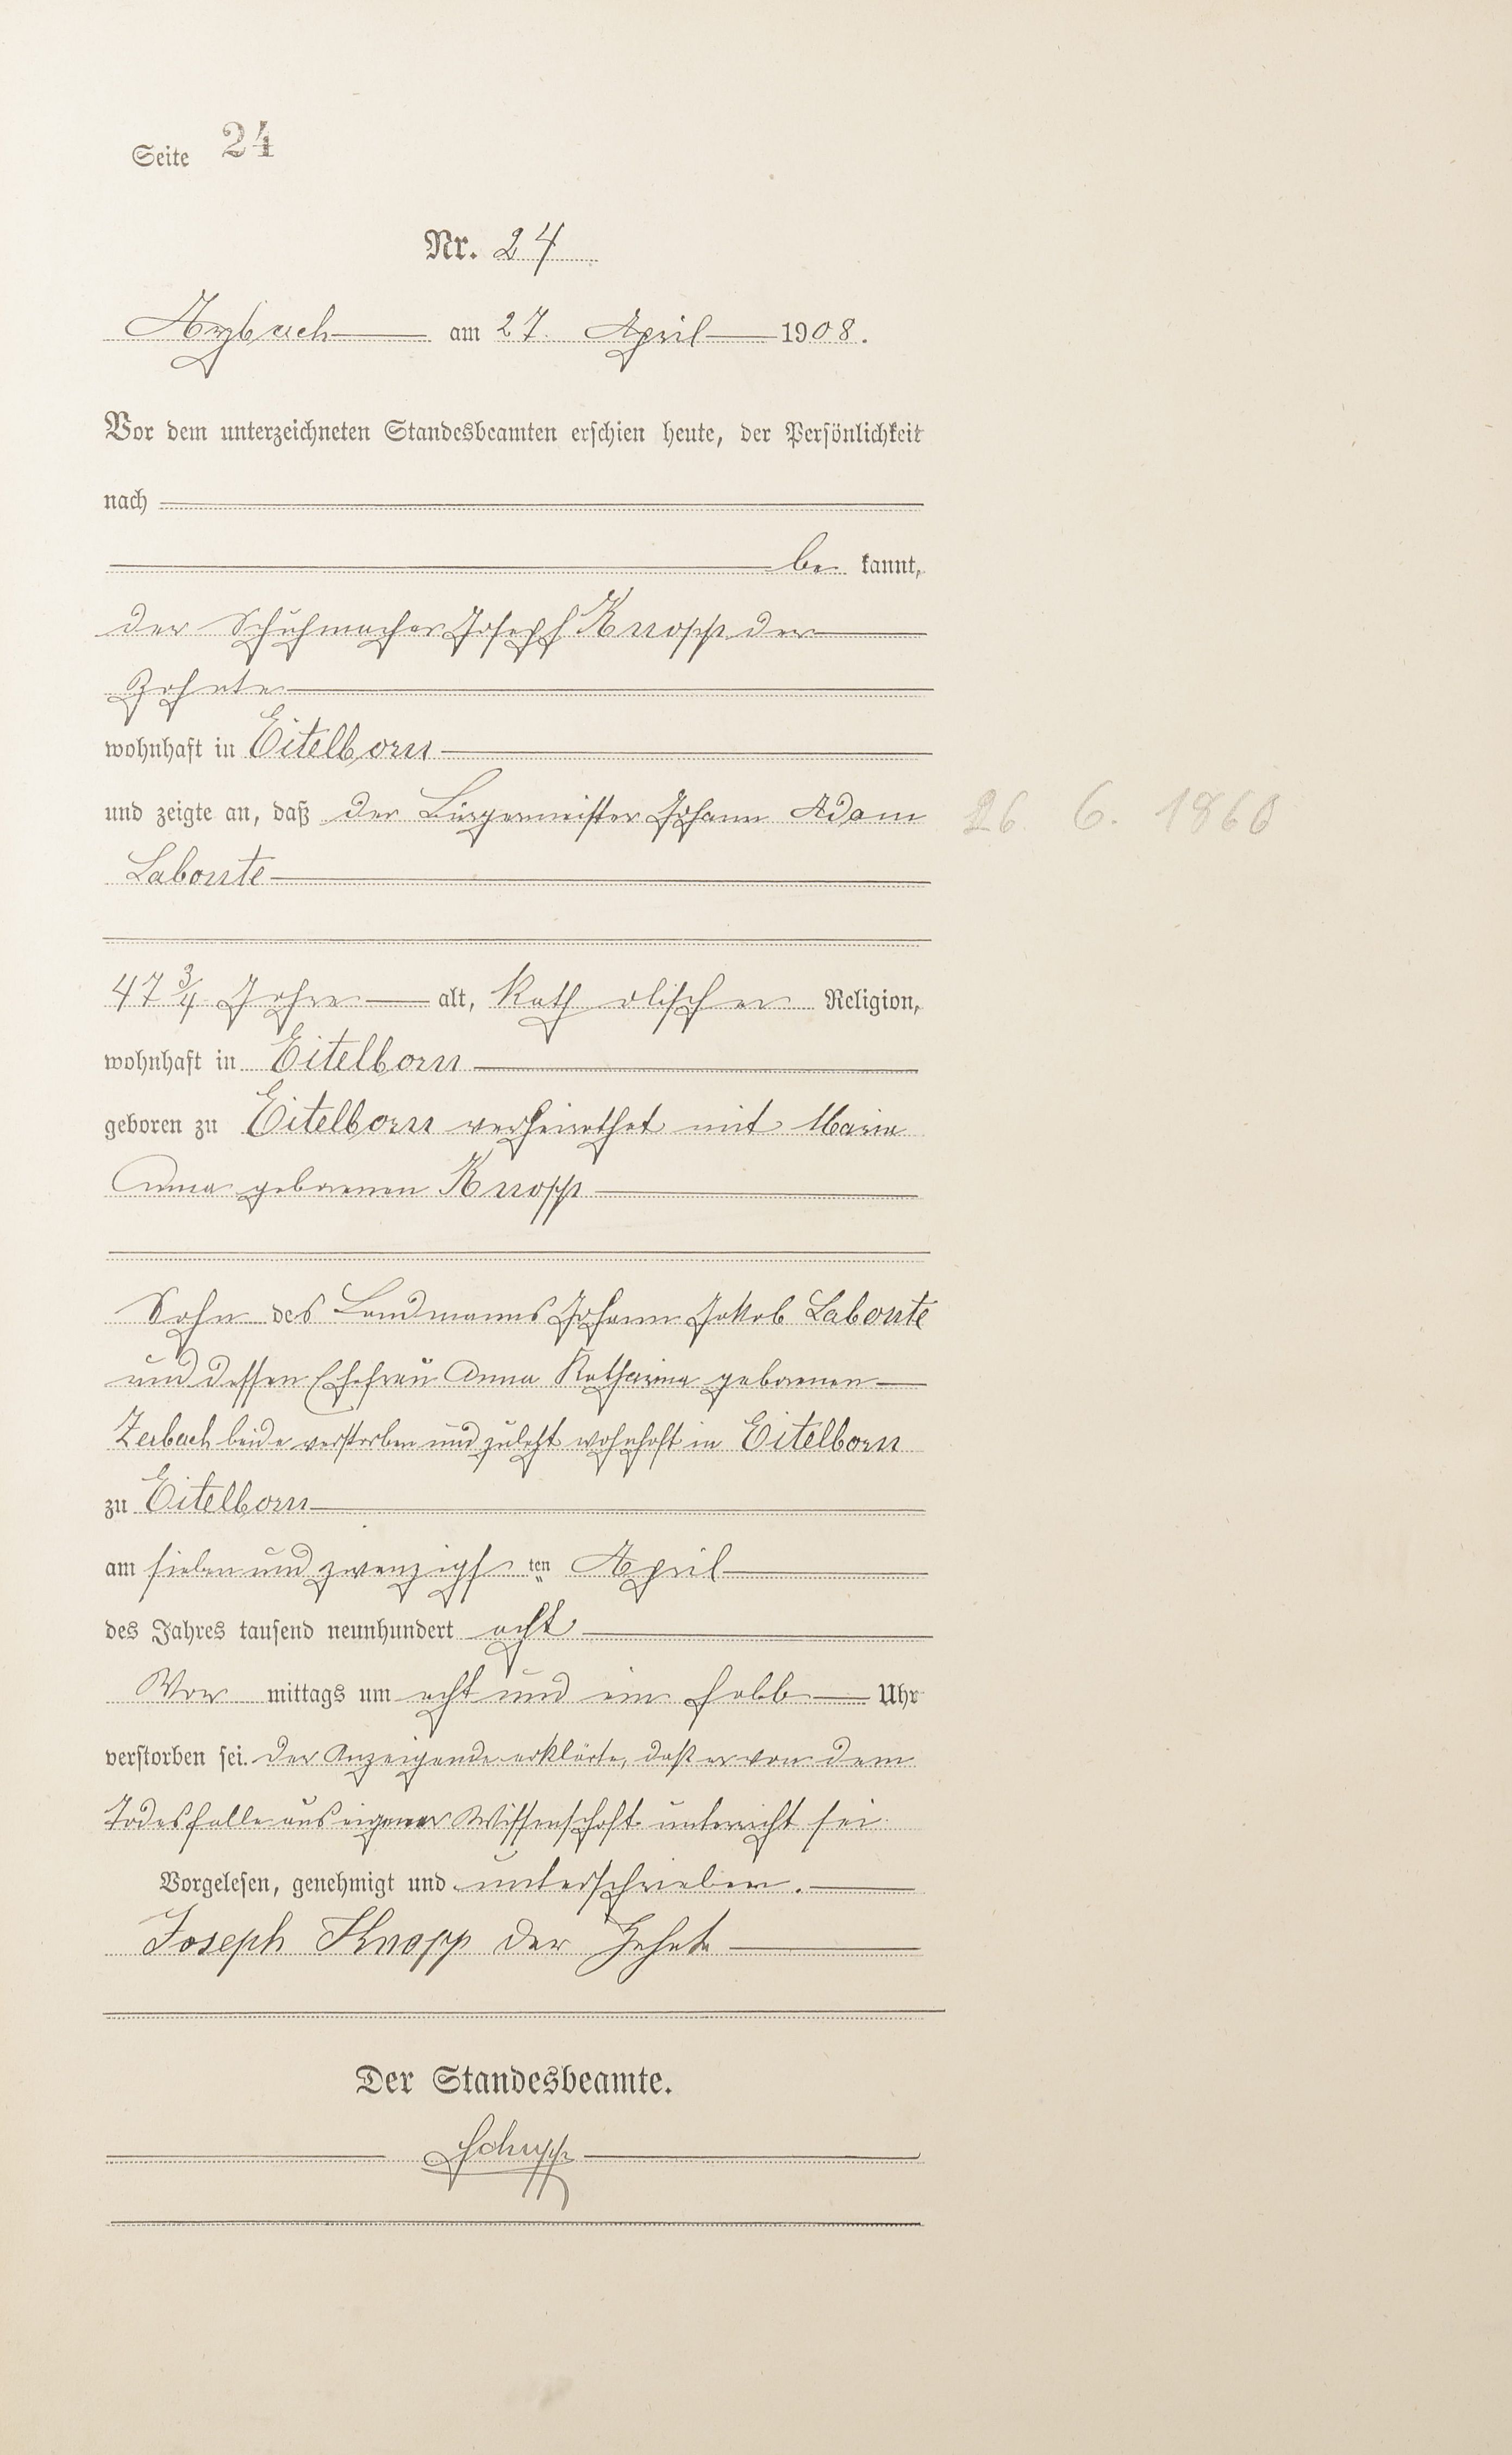 Seite 24
Nr. 24
Arzbach am 27. April 1908.
Vor dem unterzeichneten Standesbeamten erschien heute, der Persönlichkeit
nach
be kannt,
der Schuhmacher Joseph Knopp der
Zehnte
wohnhaft in Eitelborn
und zeigte an, daß der Bürgermeister Johann Adam
26. 6. 1860
Labonte
47 3/4 Jahre alt, katholischer Religion,
wohnhaft in Eitelborn
geboren zu Eitelborn verheirathet mit Maria
Anna geborenen Knopp
Sohn des Landmanns Johann Jakob Labonte
und dessen Ehefrau Anna Katharina geborenen
Zerbach beide verstorben und zuletzt wohnhaft in Eitelborn
zu Eitelborn
am sieben und zwanzigsten April
des Jahres tausend neunhundert acht
Vor mittags um acht und ein halb Uhr
verstorben sei. Der Anzeigende erklärte, daß er von dem
Todesfalle aus eigener Wissenschaft unterricht sei.
Vorgelesen, genehmigt und unterschrieben.
Joseph Knopp der Zehnte
Der Standesbeamte.
Schupp